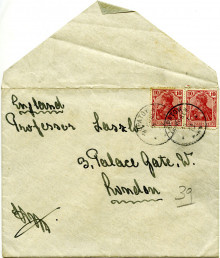 England
Professor Laszlo
3, Palace Gate, W.
London
39
10 10 10 10